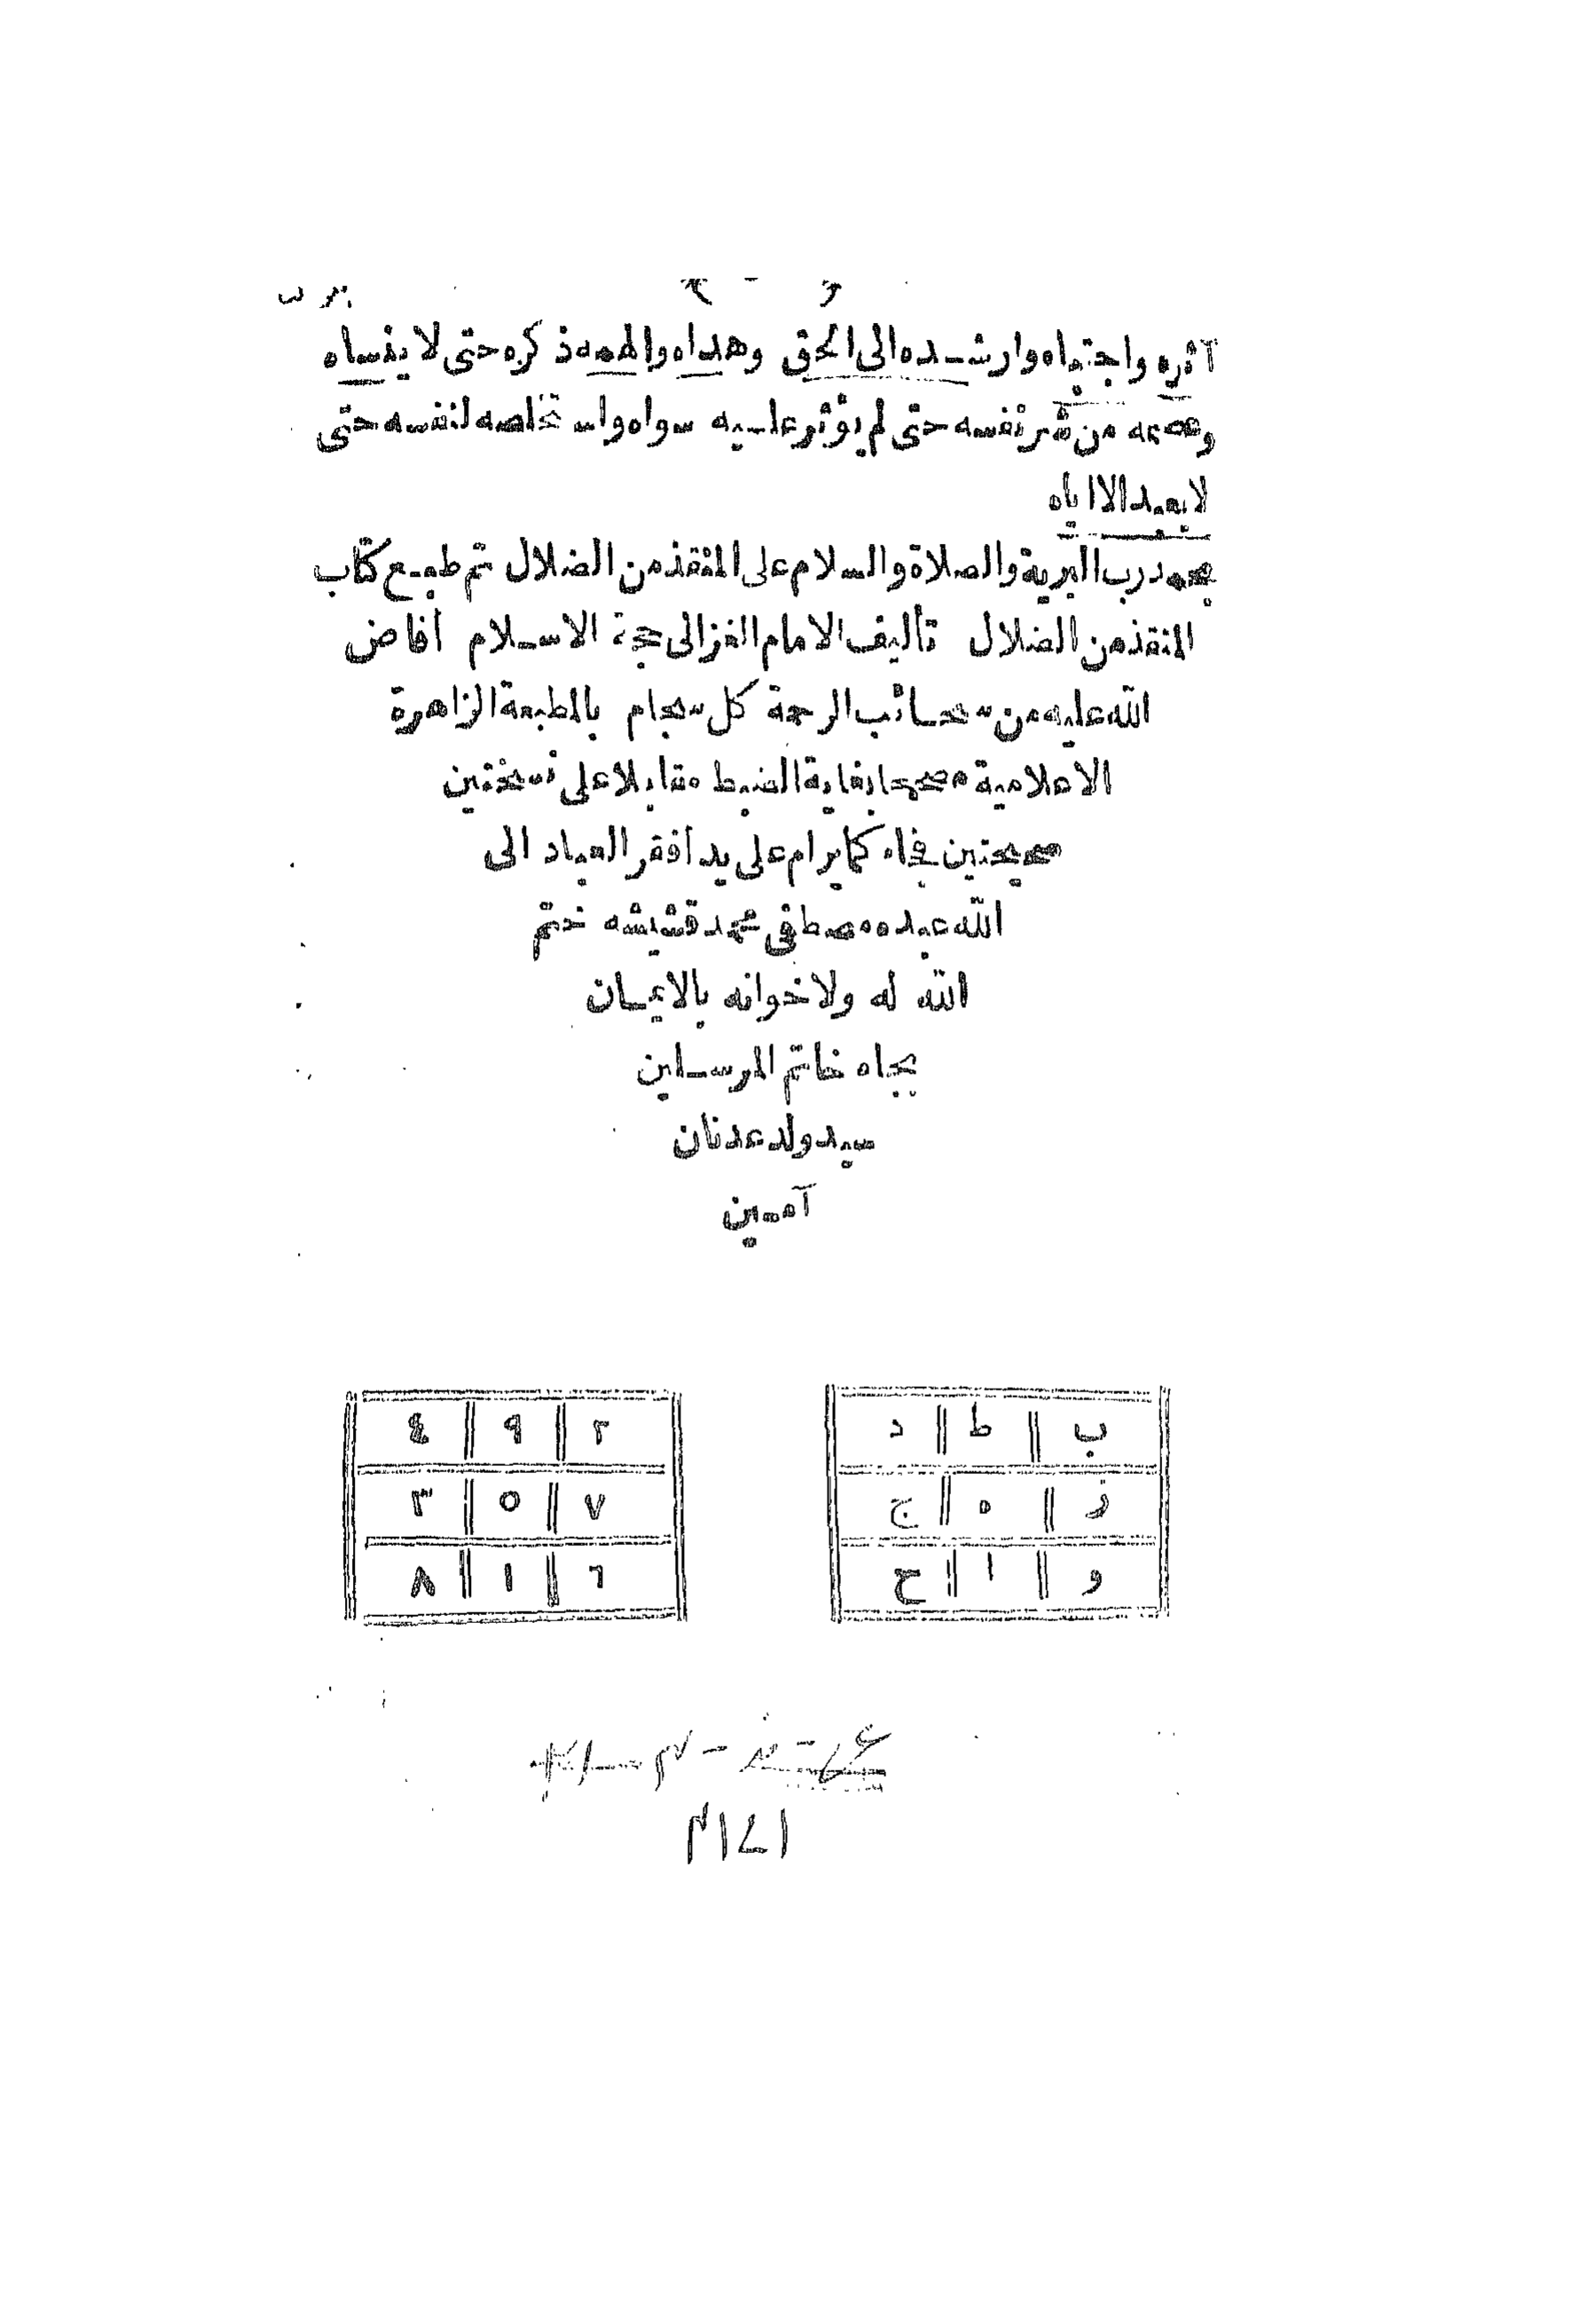 آثره واجتباه وارشده الى الحق وهداه والهمه ذكره حتى لا ينساه
وعصمه من شر نفسه حتى لم يؤثر عليه سواه واستخلصه لنفسه حتى
لا يعبد الا اياه
بحمد رب البرية والصلاة والسلام على المنقذ من الضلال تم طبع كتاب
المنقذ من الضلال تأليف الامام الغزالى حجة الاسلام أفاض
الله عليه من سحائب الرحمة كل سجام بالمطبعة الزاهرة
الاعلامية مصححا بغاية الضبط مقابلا على نسختين
صحيحتين فجاء كما يرام على يد أفقر العباد الى
الله عبده مصطفى محمد قشيشه ختم
الله له ولاخوانه بالايمان
بجاه خاتم المرسلين
سيد ولد عدنان
آمين
ب ط د
ز ه ج
و ا ح
٢ ٩ ٤
٧ ٥ ٣
٦ ١ ٨